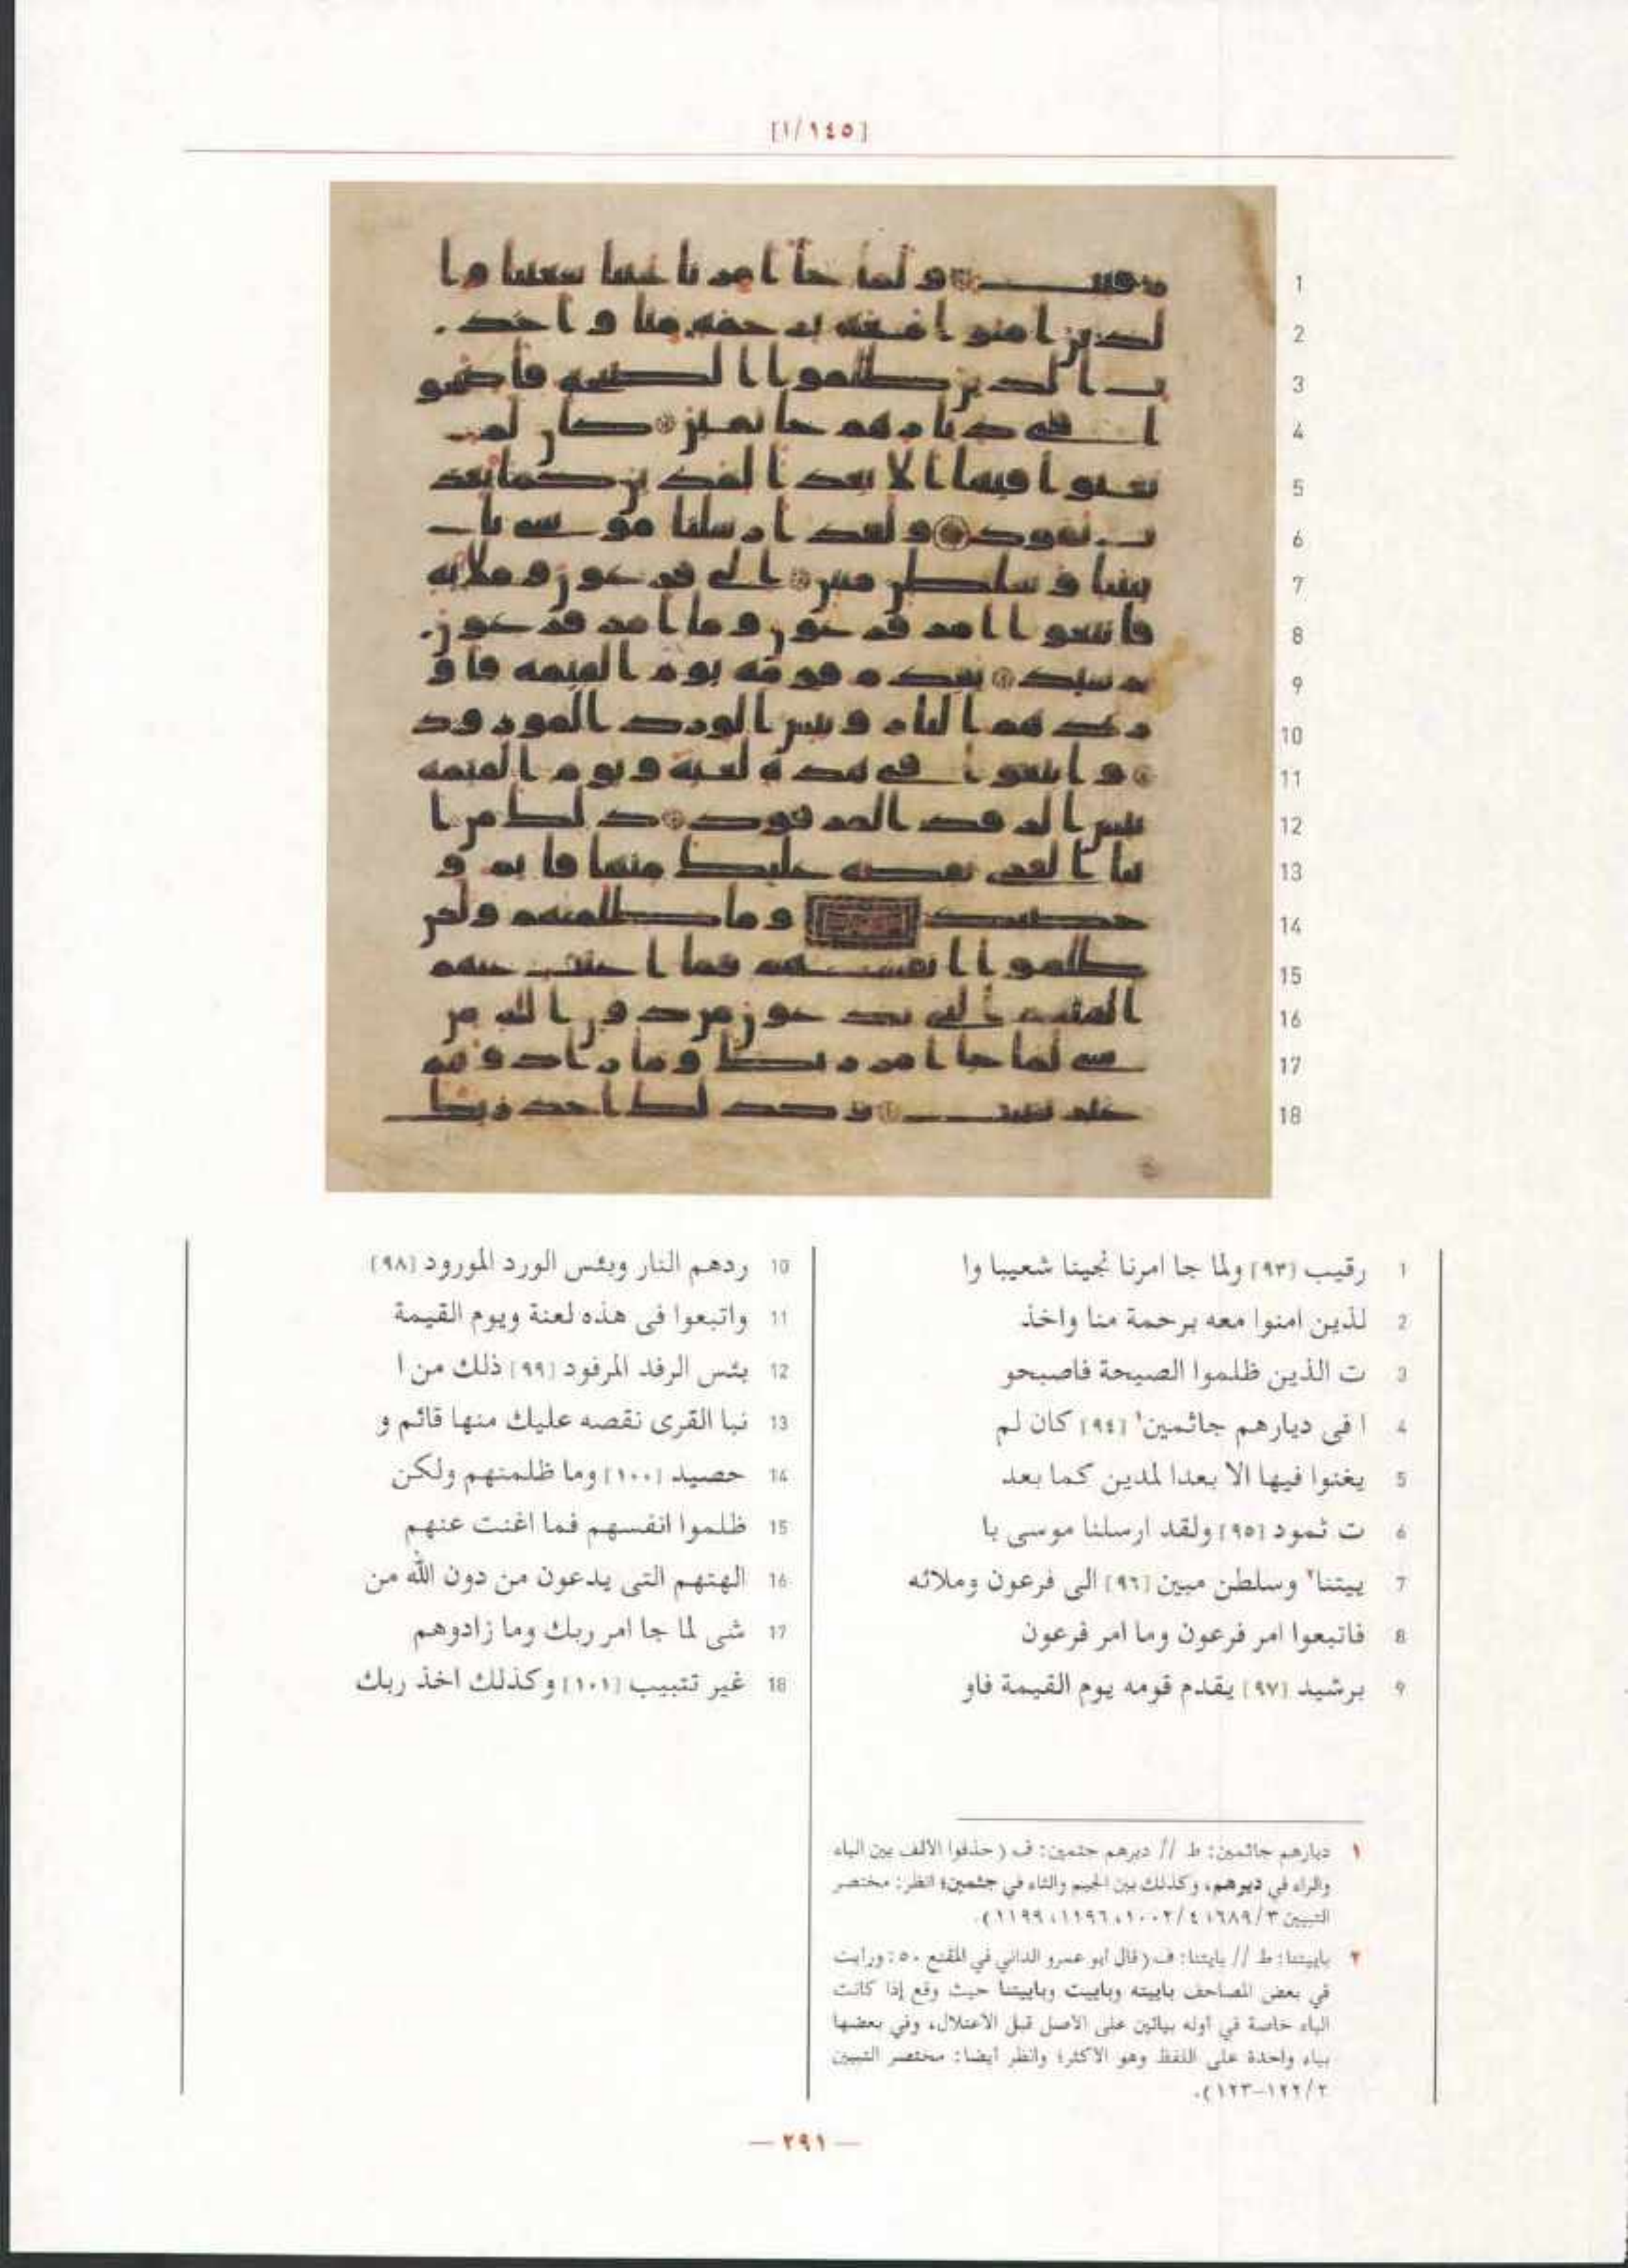 [١٤٥/١]
1 رقيب [٩٣] ولما جا امرنا نجينا شعيبا وا
2 لذين امنوا معه برحمة منا واخذ
3 ت الذين ظلموا الصيحة فاصبحو
4 ا فى ديارهم جاثمين١ [٩٤] كان لم
5 يغنوا فيها الا بعدا لمدين كما بعد
6 ت ثمود [٩٥] ولقد ارسلنا موسى با
7 ييتنا٢ وسلطن مبين [٩٦] الى فرعون وملائه
8 فاتبعوا امر فرعون وما امر فرعون
9 برشيد [٩٧] يقدم قومه يوم القيمة فاو
10 ردهم النار وبئس الورد المورود [٩٨]
11 واتبعوا فى هذه لعنة ويوم القيمة
12 بئس الرفد المرفود [٩٩] ذلك من ا
13 نبا القرى نقصه عليك منها قائم و
14 حصيد [١٠٠] وما ظلمنهم ولكن
15 ظلموا انفسهم فما اغنت عنهم
16 الهتهم التى يدعون من دون الله من
17 شى لما جا امر ربك وما زادوهم
18 غير تتبيب [١٠١] وكذلك اخذ ربك
١ ديارهم جاثمين: ط // ديرهم جثمين: ف (حذفوا الألف بين الياء
والراء في ديرهم، وكذلك بين الجيم والثاء في جثمين؛ انظر: مختصر
التبيين ٦٨٩/٣؛ ١٠٠٢/٤، ١١٩٦، ١١٩٩).
٢ باييتنا: ط // بايتنا: ف (قال أبو عمرو الداني في المقنع ٥٠: ورأيت
في بعض المصاحف باييته وباييت وباييتنا حيث وقع إذا كانت
الباء خاصة في أوله بيائين على الأصل قبل الاعتلال، وفي بعضها
بياء واحدة على اللفظ وهو الأكثر؛ وانظر أيضا: مختصر التبيين
١٢٢/٢-١٢٣).
— ٢٩١ —